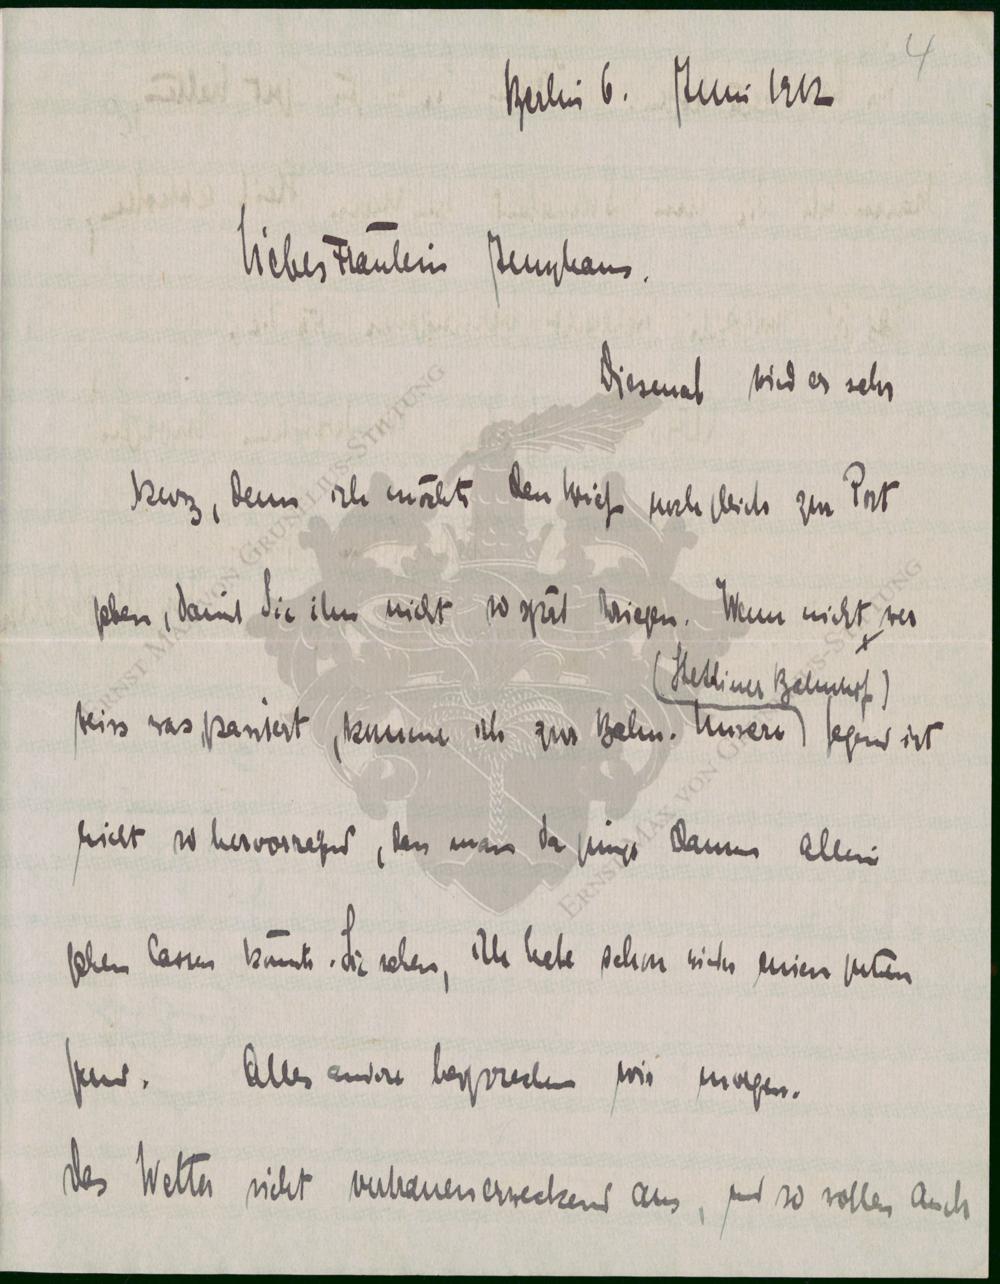 4
Berlin 6. Juni 1912
Liebes Fräulein Junghans.
Diesmal wird es sehr
kurz, denn ich möchte den Brief noch gleich zur Post
geben, damit Sie ihn nicht so spät kriegen. Wenn nicht wer
(Stettiner Bahnhof)
weiss was passiert, komme ich zur Bahn. Unsere Gegend ist
nicht so hervorragend, dass man da junge Damen allein
gehen lassen könnte. Sie sehen, ich habe schon wieder meinen guten
Grund. Alles andere besprechen wir morgen.
Das Wetter sieht vertrauenerweckend aus, und so wollen auch
ERNST MAX VON GRUNELIUS-STIFTUNG
ERNST MAX VON GRUNELIUS-STIFTUNG